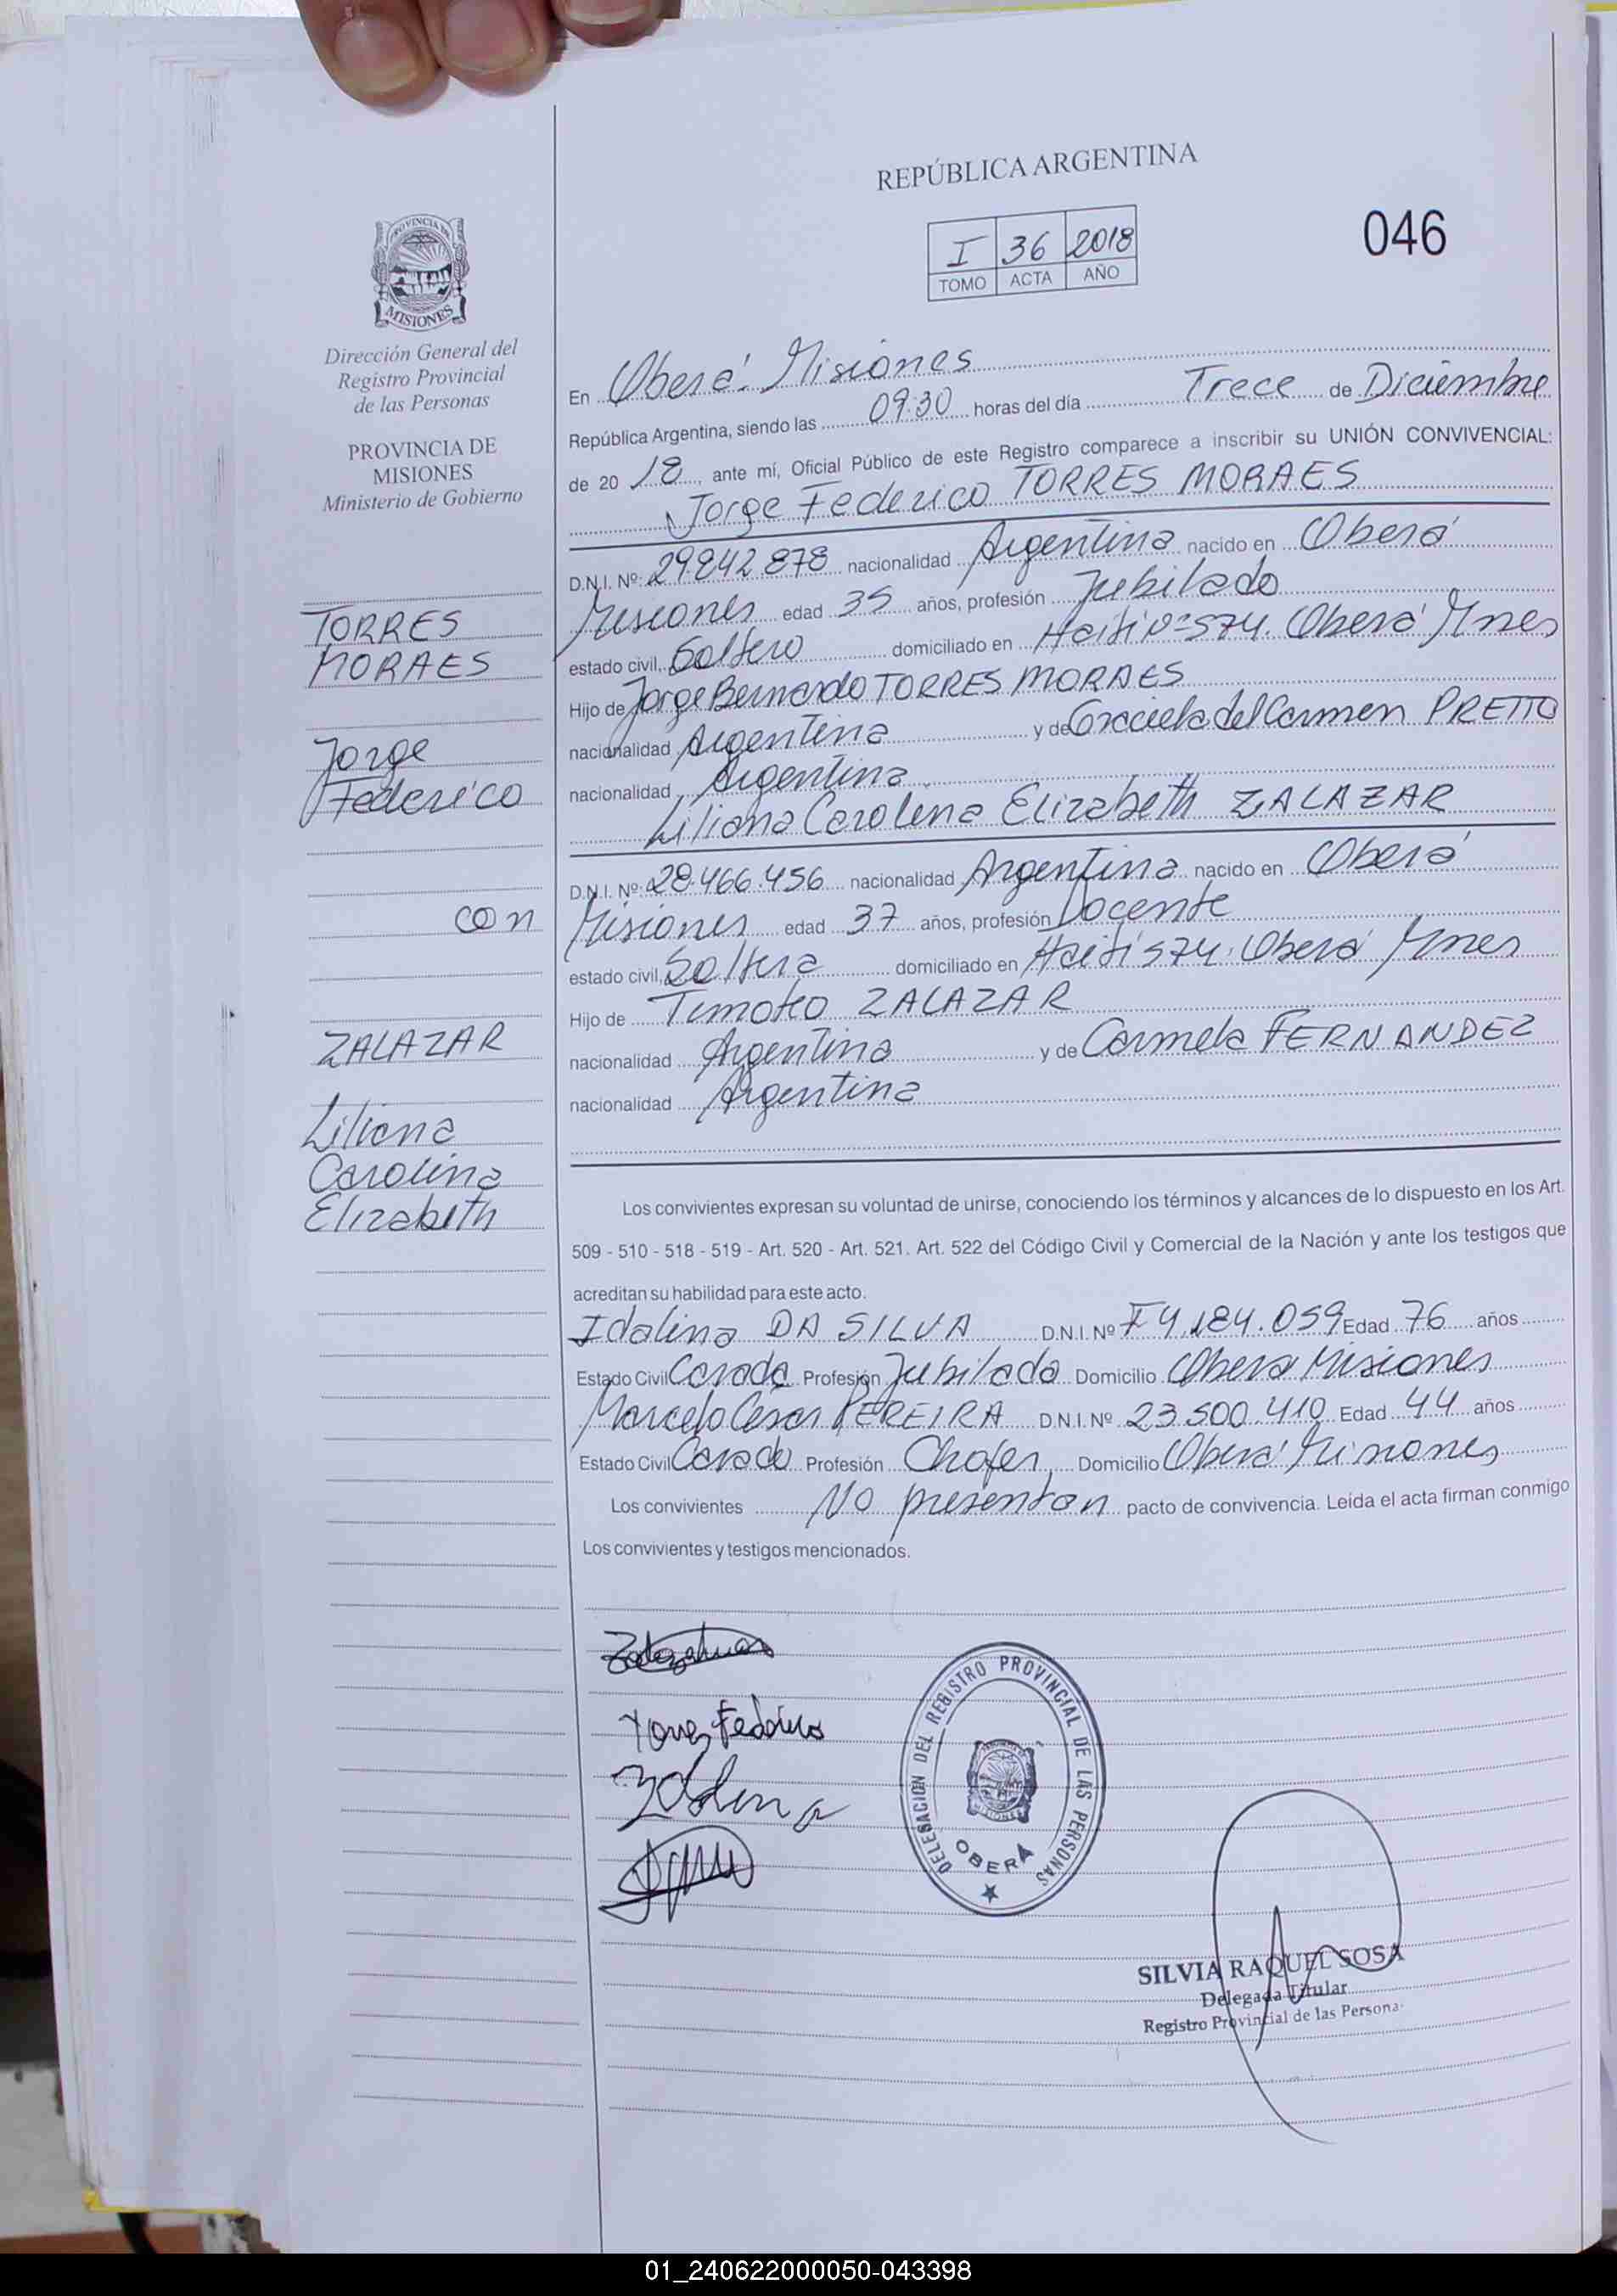 REPÚBLICA ARGENTINA
046
I 36 2018
TOMO ACTA AÑO
PROVINCIA DE
MISIONES
Dirección General del
Registro Provincial
de las Personas
PROVINCIA DE
MISIONES
Ministerio de Gobierno
TORRES
MORAES
Jorge
Federico
con
ZALAZAR
Liliana
Carolina
Elizabeth
En Oberá. Misiones
República Argentina, siendo las 09:30 horas del día Trece de Diciembre
de 20 18, ante mí, Oficial Público de este Registro comparece a inscribir su UNIÓN CONVIVENCIAL:
Jorge Federico TORRES MORAES
D.N.I. Nº: 29.842.878 nacionalidad Argentina nacido en Oberá
Misiones edad 35 años, profesión Jubilado
estado civil, Soltero domiciliado en Haití Nº 574. Oberá Mnes
Hijo de Jorge Bernardo TORRES MORAES
nacionalidad Argentina y de Graciela del Carmen PRETTO
nacionalidad Argentina
Liliana Carolina Elizabeth ZALAZAR
D.N.I. Nº: 28.466.456 nacionalidad Argentina nacido en Oberá
Misiones edad 37 años, profesión Docente
estado civil, Soltera domiciliado en Haití 574. Oberá Mnes
Hijo de Timoteo ZALAZAR
nacionalidad Argentina y de Carmela FERNANDEZ
nacionalidad Argentina
Los convivientes expresan su voluntad de unirse, conociendo los términos y alcances de lo dispuesto en los Art.
509 - 510 - 518 - 519 - Art. 520 - Art. 521. Art. 522 del Código Civil y Comercial de la Nación y ante los testigos que
acreditan su habilidad para este acto.
Idalina DA SILVA D.N.I. Nº F4.184.059 Edad 76 años
Estado Civil Casada Profesión Jubilada Domicilio Oberá Misiones
Marcelo César PEREIRA D.N.I. Nº 23.500.410 Edad 44 años
Estado Civil Casado Profesión Chofer, Domicilio Oberá Misiones,
Los convivientes No presentan pacto de convivencia. Leída el acta firman conmigo
Los convivientes y testigos mencionados.
DELEGACION DEL REGISTRO PROVINCIAL DE LAS PERSONAS
OBERÁ
SILVIA RAQUEL SOSA
Delegada Titular
Registro Provincial de las Persona
01_240622000050-043398